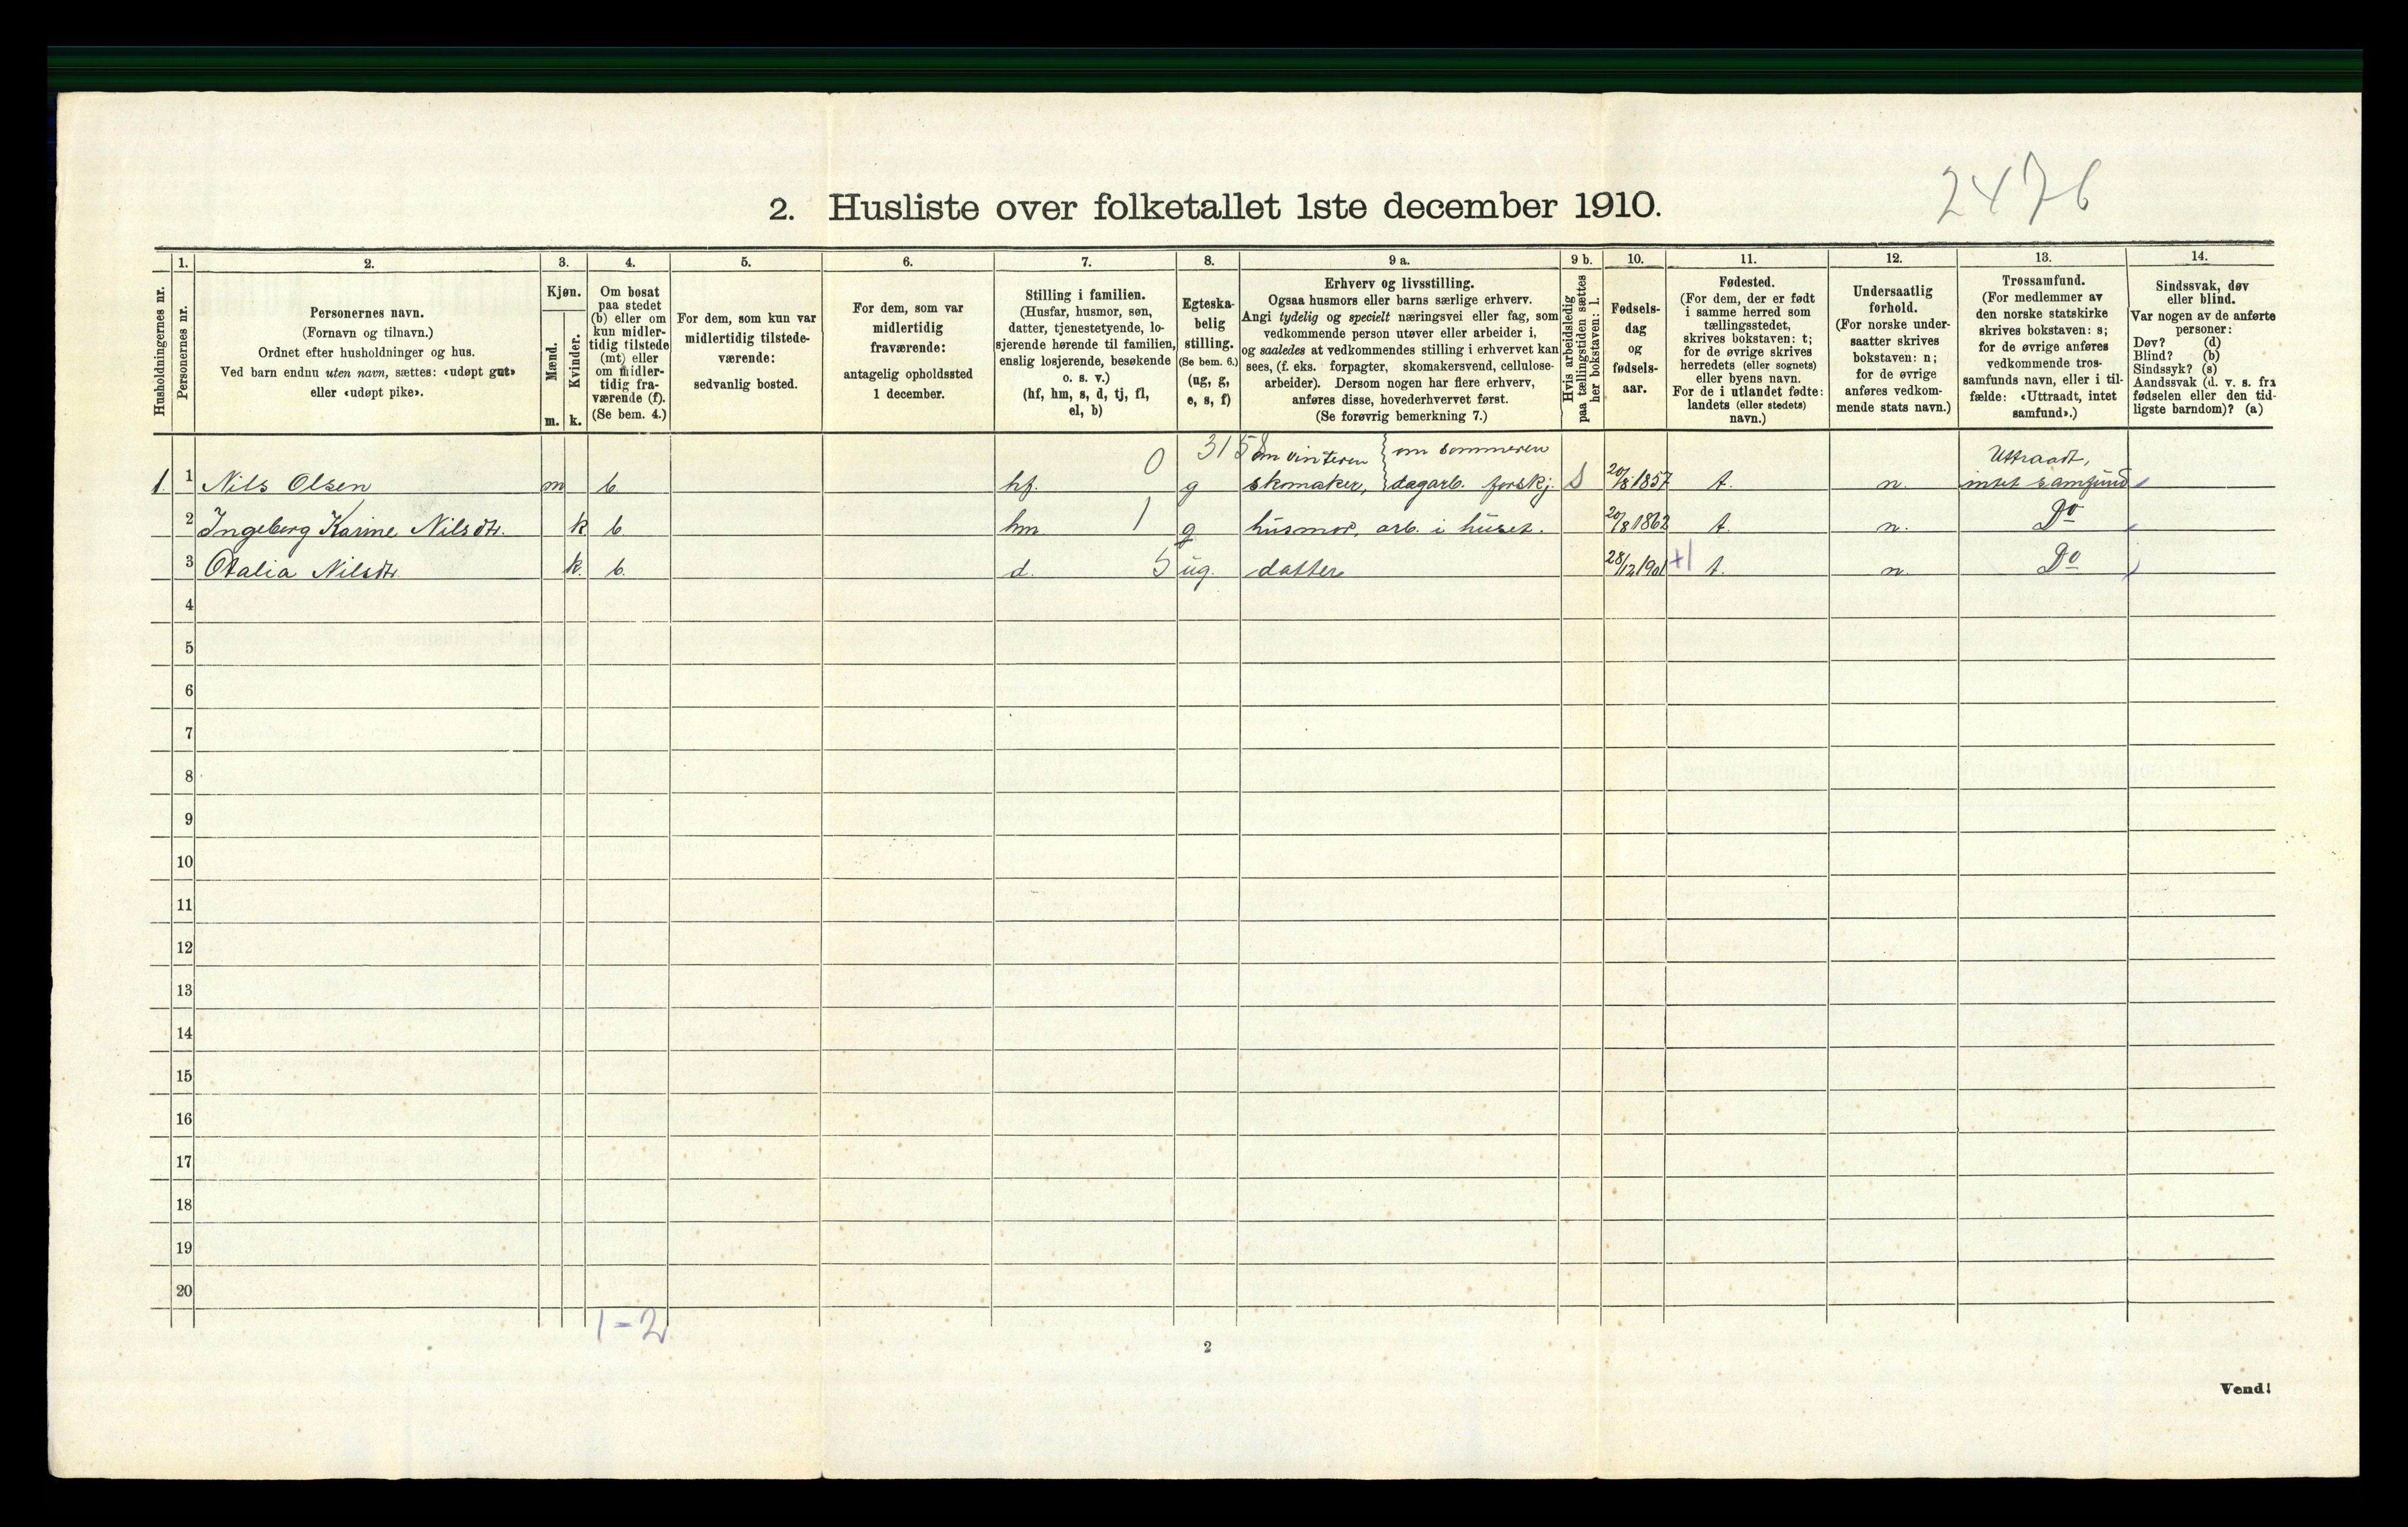 2476
2. Husliste over folketallet 1ste december 1910.
Husholdningernes nr.
1.
Personernes nr.
2.
Personernes navn.
(Fornavn og tilnavn.)
Ordnet efter husholdninger og hus.
Ved barn endnu uten navn, sættes: «udøpt gut»
eller «udøpt pike».
3.
Kjøn.
Mænd.
Kvinder.
m. k.
4.
Om bosat
paa stedet
(b) eller om
kun midler-
tidig tilstede
(mt) eller
om midler-
tidig fra-
værende (f).
(Se bem. 4.)
5.
For dem, som kun var
midlertidig tilstede-
værende:
sedvanlig bosted.
6.
For dem, som var
midlertidig
fraværende:
antagelig opholdssted
1 december.
7.
Stilling i familien.
(Husfar, husmor, søn,
datter, tjenestetyende, lo-
sjerende hørende til familien,
enslig losjerende, besøkende
o. s. v.)
(hf, hm, s, d, tj, fl,
el, b)
8.
Egteska-
belig
stilling.
(Se bem. 6.)
(ug, g,
e, s, f)
9 a.
Erhverv og livsstilling.
Ogsaa husmors eller barns særlige erhverv.
Angi tydelig og specielt næringsvei eller fag, som
vedkommende person utøver eller arbeider i,
og saaledes at vedkommendes stilling i erhvervet kan
sees, (f. eks. forpagter, skomakersvend, cellulose-
arbeider). Dersom nogen har flere erhverv,
anføres disse, hovederhvervet først.
(Se forøvrig bemerkning 7.)
9 b.
Hvis arbeidsledig
paa tællingstiden sættes
her bokstaven: l.
10.
Fødsels-
dag
og
fødsels-
aar.
11.
Fødested.
(For dem, der er født
i samme herred som
tællingsstedet,
skrives bokstaven: t;
for de øvrige skrives
herredets (eller sognets)
eller byens navn.
For de i utlandet fødte:
landets (eller stedets)
navn.)
12.
Undersaatlig
forhold.
(For norske under-
saatter skrives
bokstaven: n;
for de øvrige
anføres vedkom-
mende stats navn.)
13.
Trossamfund.
(For medlemmer av
den norske statskirke
skrives bokstaven: s;
for de øvrige anføres
vedkommende tros-
samfunds navn, eller i til-
fælde: «Uttraadt, intet
samfund».)
14.
Sindssvak, døv
eller blind.
Var nogen av de anførte
personer:
Døv? (d)
Blind? (b)
Sindssyk? (s)
Aandssvak (d. v. s. fra
fødselen eller den tid-
ligste barndom)? (a)
0 3158 om vinteren om sommeren Uttraadt,
1. 1 Nils Olsen m b. hf. g skomaker, dagarb. forskj. 20/8 1857 t. n. intet samfund
2 Ingeborg Karine Nilsdtr. k b hm 1 g husmor, arb. i huset. 20/8 1862 t. n. Do
3 Otalia Nilsdtr. k. b. d. 5 ug. datter 28/12 1901 +1 t. n. Do
4
5
6
7
8
9
10
11
12
13
14
15
16
17
18
19
20
1-2
2
Vend!